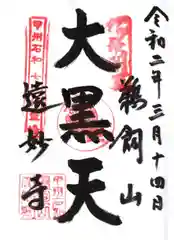 令和二年三月十四日
鵜飼山
大黒天
甲州石和
遠妙寺